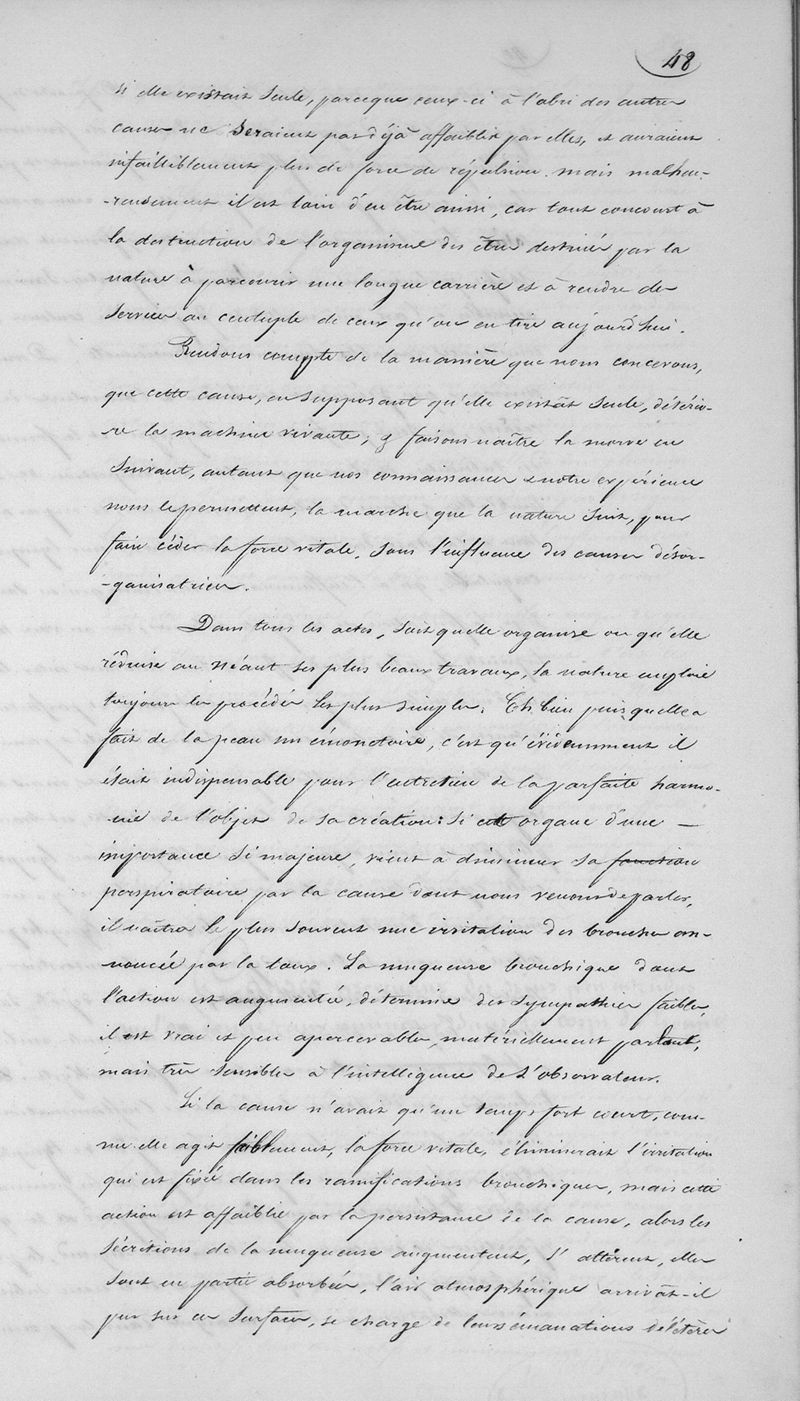 48
si elle existait seule, parceque ceux-ci à l'abri des autres
causes ne seraient pas déjà affaiblis par elles, et auraient
infailliblement plus de force de répulsion. mais malheu-
-reusement il est loin d'en être ainsi, car tout concourt à
la destruction de l'organisme des êtres destinés par la
nature à parcourir une longue carrière et à rendre des
services au centuple de ceux qu'on en tire aujourd'hui.
Rendons compte de la manière que nous concevons,
que cette cause, en supposant qu'elle existât seule, détério-
re la machine vivante; y faisons naître la morve en
suivant, autant que nos connaissances & notre expérience
nous le permettent, la marche que la nature suit, pour
faire céder la force vitale, sous l'influence des causes désor-
-ganisatrices.
Dans tous les actes, soit quelle organise ou qu'elle
réduise au néant ses plus beaux travaux, la nature emploie
toujours les procédés les plus simples. Eh bien puisquelle a
fait de la peau un émonctoire, c'est qu'évidemment il
était indispensable pour l'entretien de la parfaite harmo-
-nie de l'objet de sa création: si cet organe d'une —
importance si majeure, vient à diminuer sa fonction
perspiratoire par la cause dont nous venons de parler,
il naîtra le plus souvent une irritation des bronches an-
noncée par la toux. La muqueuse bronchique dont
l'action est augmentée, détermine des sympathies faibles,
il est vrai et peu apercevables, matériellement parlant,
mais très sensibles à l'intelligence de l'observateur.
Si la cause n'avait qu'un temps fort court, com-
me elle agit faiblement, la force vitale, éliminerait l'irritation
qui est fixée dans les ramifications bronchiques, mais cette
action est affaiblie par la persistance de la cause, alors les
sécrétions de la muqueuse augmentent, s'altèrent, elles
sont en partie absorbées, l'air atmosphérique arrivât-il
pur sur ces surfaces, se charge de leurs émanations délétères